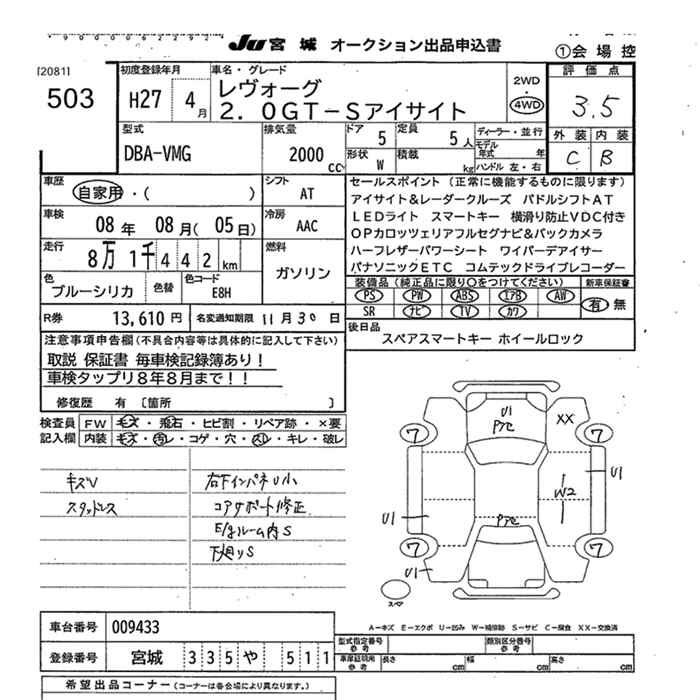 JU宮城 オークション出品申込書
①会場控
[2081]
503
初度登録年月
H27 4月
車名・グレード
レヴォーグ
2.0GT-Sアイサイト
2WD
・
4WD
評価点
3.5
外装 内装
C B
型式
DBA-VMG
排気量
2000 cc
ドア 5
定員 5人
形状 W
積載 kg
ディーラー・並行
モデル年式 年
ハンドル 左・右
車歴
自家用・( )
シフト
AT
車検
08年 08月(05日)
冷房
AAC
走行
8万1千442km
燃料
ガソリン
色
ブルーシリカ
色替
色コード
E8H
R券 13,610円
名変通知期限 11月30日
セールスポイント (正常に機能するものに限ります)
アイサイト&レーダークルーズ パドルシフトAT
LEDライト スマートキー 横滑り防止VDC付き
OPカロッツェリアフルセグナビ&バックカメラ
ハーフレザーパワーシート ワイパーデアイサー
パナソニックETC コムテックドライブレコーダー
装備品(純正品に限り○をつけてください)
PS PW ABS エアB AW
SR ナビ TV カワ
新車保証書
有 無
後日品
スペアスマートキー ホイールロック
注意事項申告欄(不具合内容等は具体的に記入して下さい)
取説 保証書 毎車検記録簿あり!
車検タップリ8年8月まで!!
修復歴 有 〔箇所 〕
検査員記入欄
FW キズ・飛石・ヒビ割・リペア跡・×要
内装 キズ・汚レ・コゲ・穴・スレ・キレ・破レ
キズV
スタッドレス
右下インパネU小
コアサポート修正
E/gルーム内S
下廻りS
U1
PTC
XX
7
7
U1
W2
PTC
U1
7
7
U1
スペア
A-キズ E-エクボ U-凹み W-補修跡 S-サビ C-腐食 XX-交換済
車台番号 009433
登録番号 宮城 335 や 511
型式指定番号
類別区分番号
車庫証明用参考
長さ cm
幅 cm
高さ cm
希望出品コーナー(コーナーは各会場により異なります。)